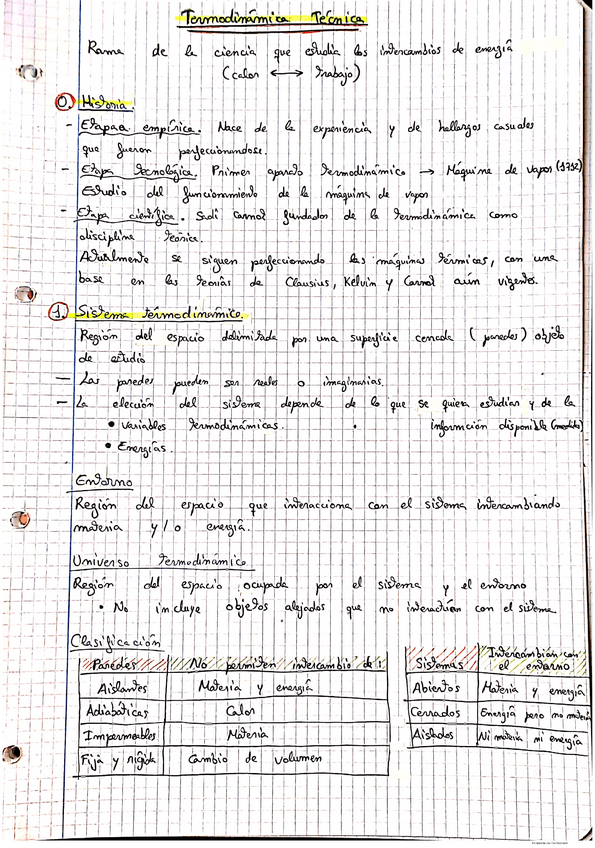 Termodinámica Técnica
Rama de la ciencia que estudia los intercambios de energía
(calor ⟷ trabajo)
0. Historia.
- Etapaa empírica. Nace de la experiencia y de hallazgos casuales
que fueron perfeccionandose.
- Etapa tecnológica. Primer aparato termodinámico → Máquina de vapor (1712)
Estudio del funcionamiento de la máquina de vapor
- Etapa científica. Sadi Carnot fundador de la termodinámica como
disciplina teórica.
Actualmente se siguen perfeccionando las máquinas térmicas, con una
base en las teorías de Clausius, Kelvin y Carnot aún vigentes.
1. Sistema térmodinámico.
Región del espacio delimitada por una superficie cerrada (paredes) objeto
de estudio
— Las paredes pueden ser reales o imaginarias.
— La elección del sistema depende de lo que se quiera estudiar y de la
• Variables termodinámicas. • información disponible (medida)
• Energías.
Entorno
Región del espacio que interacciona con el sistema intercambiando
materia y/o energía.
Universo termodinámico
Región del espacio ocupada por el sistema y el entorno
• No incluye objetos alejados que no interactúan con el sistema
Clasificación
Paredes No permiten intercambio de:
Aislantes Materia y energía
Adiabáticas Calor
Impermeables Materia
Fija y rígida Cambio de volumen
Sistemas Intercambian con
el entorno
Abiertos Materia y energía
Cerrados Energía pero no materia
Aislados Ni materia ni energía